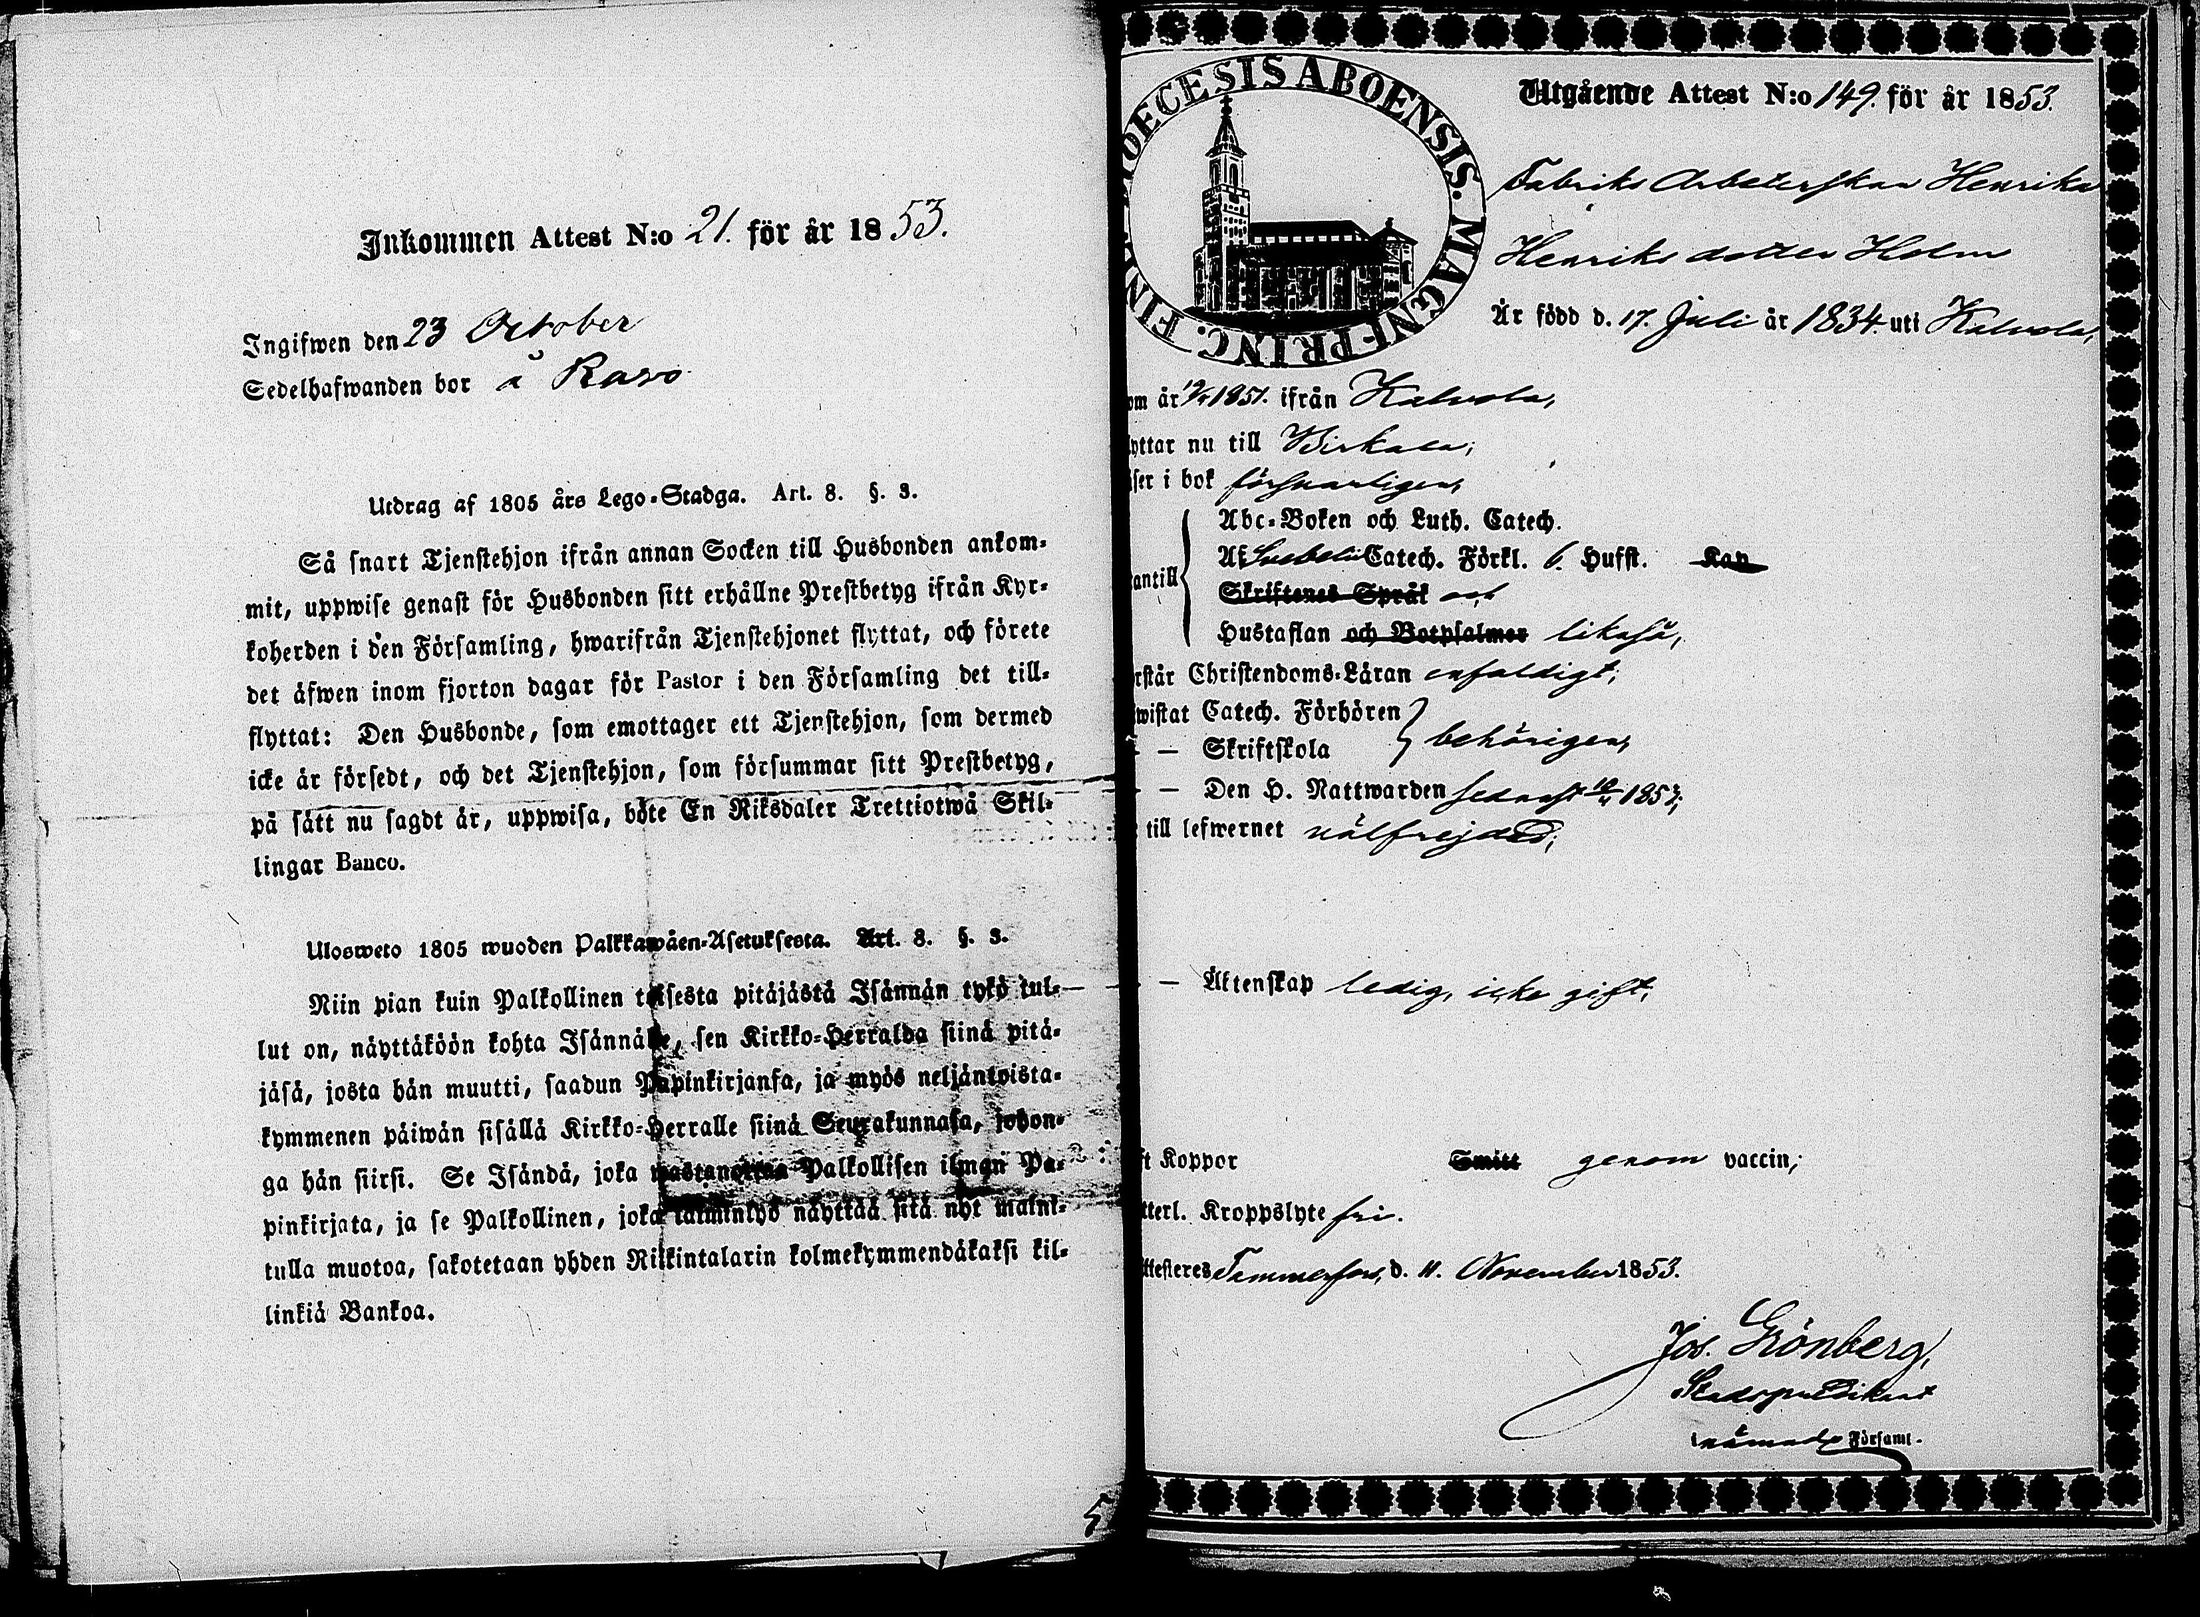 Inkommen Attest N:o 21. för år 1853.
Ingifwen den 23 October
Sedelhafwanden bor å Raso
Utdrag af 1805 års Lego-Stadga. Art. 8. §. 3.
Så snart Tjenstehjon ifrån annan Socken till Husbonden ankom-
mit, uppwise genast för Husbonden sitt erhållne Prestbetyg ifrån Kyr-
koherden i den Församling, hwarifrån Tjenstehjonet flyttat, och förete
det äfwen inom fjorton dagar för Pastor i den Församling det till-
flyttat: Den Husbonde, som emottager ett Tjenstehjon, som dermed
icke är försedt, och det Tjenstehjon, som försummar sitt Prestbetyg,
på sätt nu sagdt är, uppwisa, böte En Riksdaler Trettiotwå Skil-
lingar Banco.
Ulosweto 1805 wuoden Palkkawäen-Asetuksesta. Art. 8. §. 3.
Niin pian kuin Palkollinen toisesta pitäjästä Isännän tykö tul-
lut on, näyttäköön kohta Isännälle, sen Kirkko-Herralda siinä pitä-
jäsä, josta hän muutti, saadun Papinkirjansa, ja myös neljäntoista-
kymmenen päiwän sisällä Kirkko-Herralle siinä Seurakunnasa, johon-
ga hän siirsi. Se Isändä, joka wastanottaa Palkollisen ilman Pa-
pinkirjata, ja se Palkollinen, joka laiminlyö näyttää sitä nyt maini-
tulla muotoa, sakotetaan yhden Riikintalarin kolmekymmendäkaksi kil-
linkiä Bankoa.
5
DIOECESIS ABOENSIS. MAGNI PRINC. FIN
Utgående Attest N:o 149. för år 1853.
Fabriks Arbeterskan Henrika
Henriksdotter Holm
Är född d. 17. Juli år 1834. uti Kalvola,
om år 1851. ifrån Kalvola,
yttar nu till Birkala;
ser i bok försvarligen,
Abc-Boken och Luth. Catech.
antill Af Svebelii Catech. Förkl. 6. Hufst. Kap
Skriftenes Språk och
Hustaflan och Botpsalmer likaså,
rstår Christendoms-Läran enfaldigt;
wistat Catech. Förhören
— — Skriftskola behörigen,
— — Den H. Nattwarden sednast 1853;
till lefwernet välfrejdad;
— — Äktenskap ledig, icke gift,
ft Koppor Smitt genom vaccin;
tterl. Kroppslyte fri.
ttesteres Tammerfors, d. 11. November 1853.
Jos. Grönberg,
Stadspredikant
i nämnde Församl.